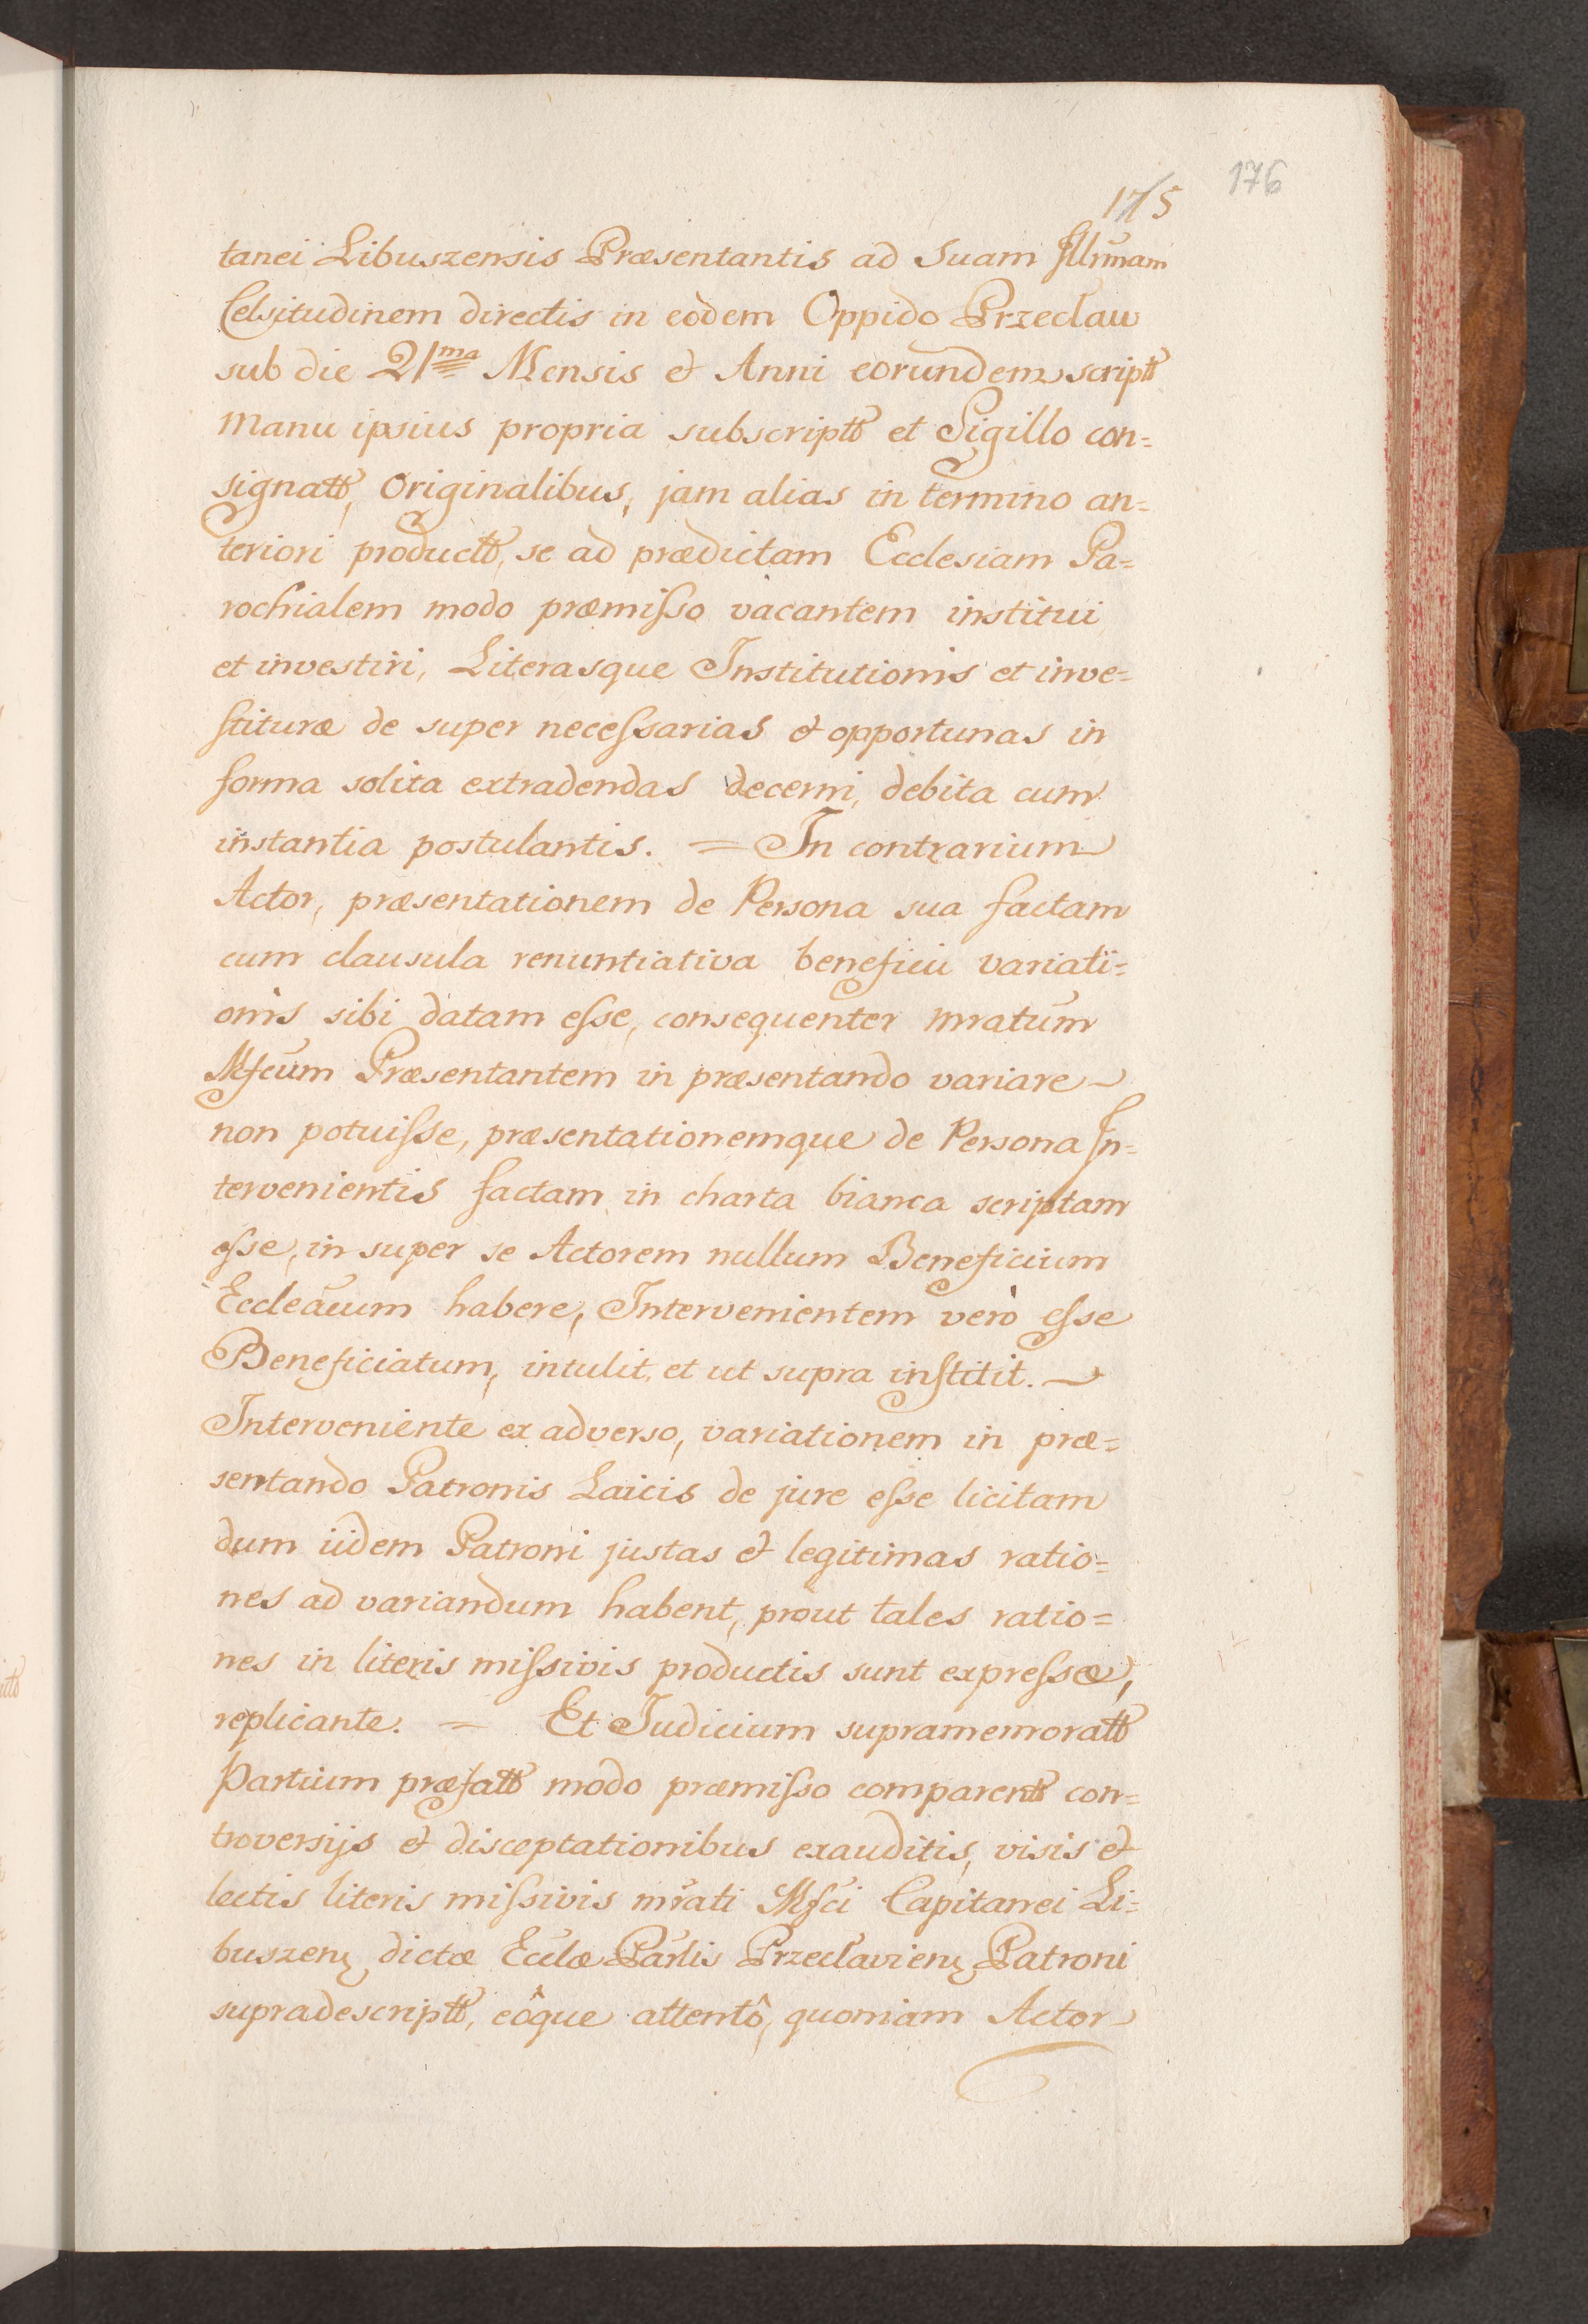 176
175
tanei Libuszensis Præsentantis ad Suam Illrmam
Celsitudinem directis in eodem Oppido Przecław
sub die 21ma Mensis & Anni eorundem scriptt
manu ipsius propria subscriptt et Sigillo con=
signatt, Originalibus, jam alias in termino an=
teriori productt, se ad prædictam Ecclesiam Pa=
rochialem modo præmisso vacantem institui
et investiri, Literasque Institutionis et inve=
stituræ de super necessarias & opportunas in
forma solita extradendas decerni, debita cum
instantia postulantis. = In contrarium
Actor, præsentationem de Persona sua factam
cum clausula renuntiativa beneficii variati=
onis sibi datam esse, consequenter mratum
Mfcum Præsentantem in præsentando variare
non potuisse, præsentationemque de Persona In=
tervenientis factam in charta bianca scriptam
esse, in super se Actorem nullum Beneficium
Eccleãcum habere, Intervenientem verò esse
Beneficiatum, intulit, et ut supra institit.
Interveniente ex adverso, variationem in præ=
sentando Patronis Laicis de jure esse licitam
dum iidem Patroni justas & legitimas ratio=
nes ad variandum habent, prout tales ratio=
nes in literis missivis productis sunt expressæ,
replicante. = Et Judicium supramemoratt
Partium præfatt modo præmisso comparentt con=
troversijs & disceptationibus exauditis, visis &
lectis literis missivis mrati Mfci Capitanei Li=
buszen, dictæ Ecclæ Parlis Przecłavien, Patroni
supradescriptt, eôque attentô, quoniam Actor